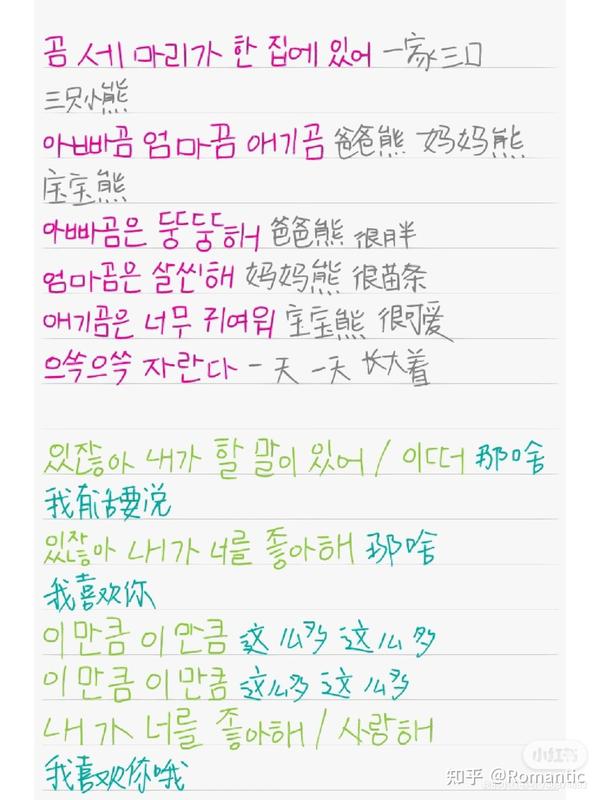 곰 세 마리가 한 집에 있어 一家三口
三只小熊
아빠곰 엄마곰 애기곰 爸爸熊 妈妈熊
宝宝熊
아빠곰은 뚱뚱해 爸爸熊 很胖
엄마곰은 날씬해 妈妈熊 很苗条
애기곰은 너무 귀여워 宝宝熊 很可爱
으쓱으쓱 자란다 一天 一天 长大着
있잖아 내가 할 말이 있어 / 이떠 那啥
我有话要说
있잖아 내가 너를 좋아해 那啥
我喜欢你
이만큼 이만큼 这么多 这么多
이만큼 이만큼 这么多 这么多
내가 너를 좋아해 / 사랑해
我喜欢你哦
小红书
知乎 @Romantic